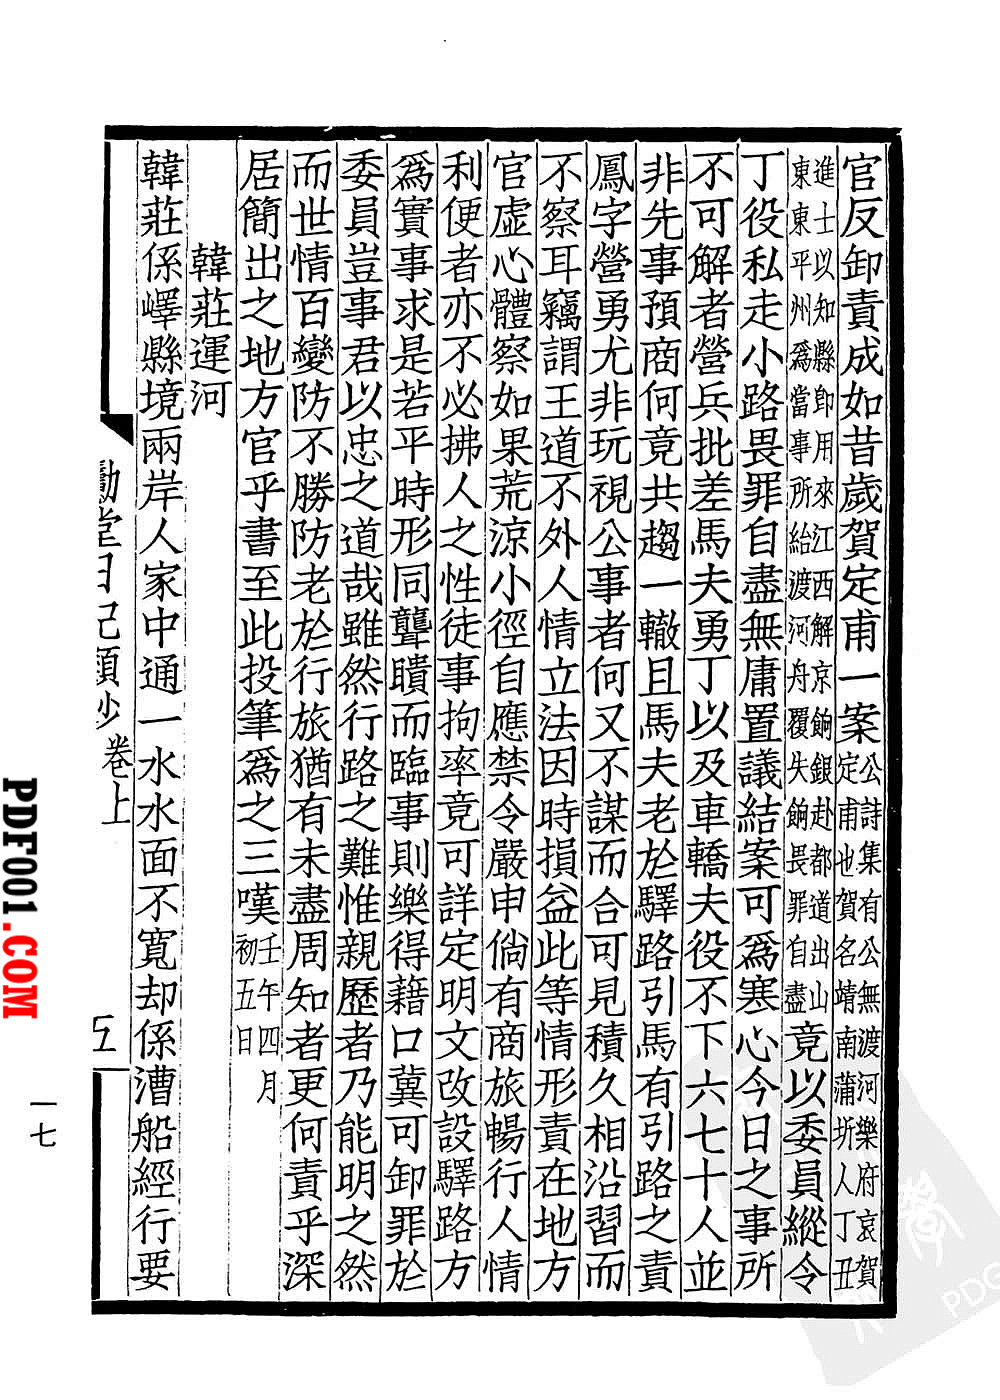 官反卸責成如昔歲賀定甫一案公詩集有公無渡河樂府哀賀定甫也賀名靖南蒲圻人丁丑
進士以知縣即用來江西解京餉銀赴都道出山東東平州爲當事所紿渡河舟覆失餉畏罪自盡竟以委員縱令
丁役私走小路畏罪自盡無庸置議結案可爲寒心今日之事所
不可解者營兵批差馬夫勇丁以及車轎夫役不下六七十人並
非先事預商何竟共趨一轍且馬夫老於驛路引馬有引路之責
鳳字營勇尤非玩視公事者何又不謀而合可見積久相沿習而
不察耳竊謂王道不外人情立法因時損益此等情形責在地方
官虛心體察如果荒涼小徑自應禁令嚴申倘有商旅暢行人情
利便者亦不必拂人之性徒事拘率竟可詳定明文改設驛路方
爲實事求是若平時形同聾聵而臨事則樂得藉口冀可卸罪於
委員豈事君以忠之道哉雖然行路之難惟親歷者乃能明之然
而世情百變防不勝防老於行旅猶有未盡周知者更何責乎深
居簡出之地方官乎書至此投筆爲之三嘆壬午四月初五日
韓莊運河
韓莊係嶧縣境兩岸人家中通一水水面不寬却係漕船經行要
勴堂日記類抄 卷上
五
一七
PDF001.COM
PDG